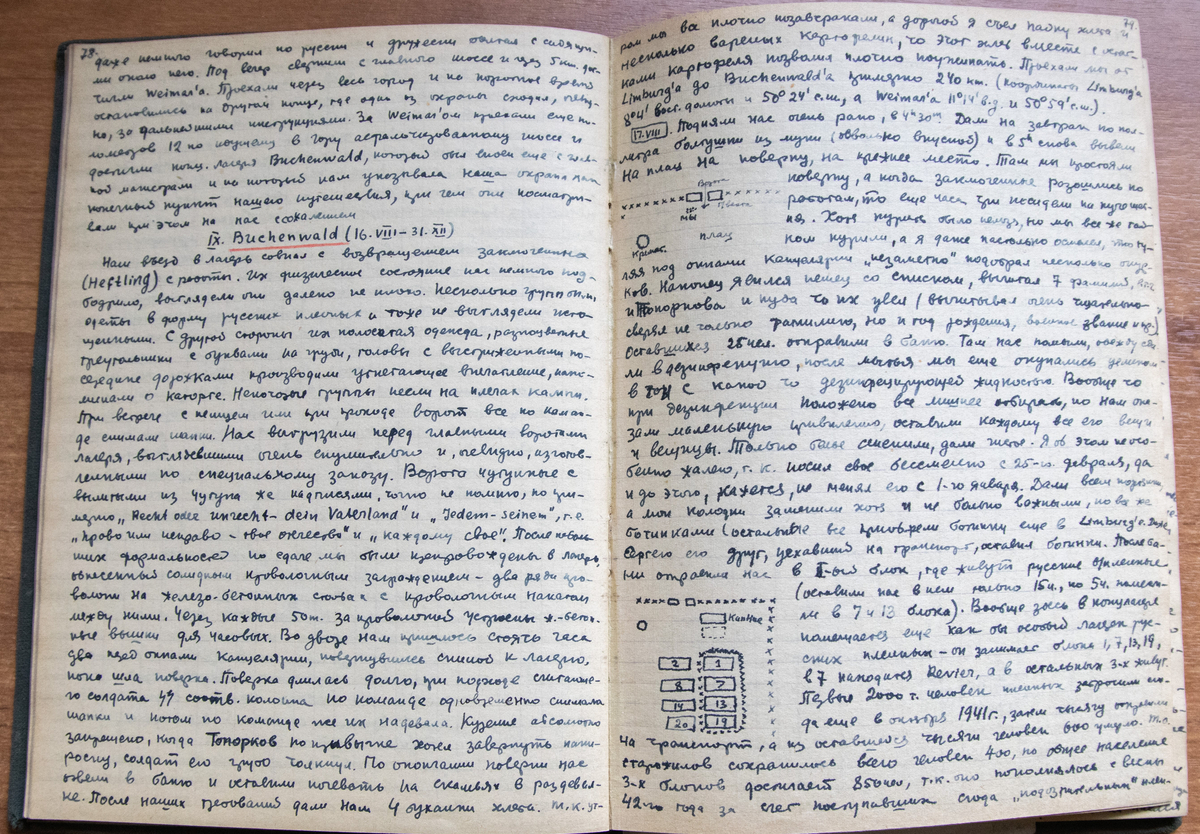 78.
даже немного говорил по русски и дружески болтал с сидящи-
ми около него. Под вечер свернули с главного шоссе и чрез 5 км. дос-
тигли Weimar'а. Проехали через весь город и на короткое время
остановились на другом конце, где один из охраны сходил, очевид-
но, за дальнейшими инструкциями. За Weimar'ом проехали еще ки-
лометров 12 по идущему в гору асфальтированному шоссе и
достигли конц. лагеря Buchenwald, который был
конечный пункт нашего путешествия, при чем они посматри-
вали при этом на нас с сожалением
IX. Buchenwald (16.VIII – 31.XII)
Наш въезд в лагерь совпал с возвращением заключенных
(Heftling) с работы. Их физическое состояние нас немного под-
бодрило, выглядели они далеко не плохо. Несколько групп были
одеты в форму русских пленных и тоже не выглядели исто-
щенными. С другой стороны их полосатая одежда, разноцветные
треугольники с буквами на груди, головы с выстриженными по-
середине дорожками производили угнетающее впечатление, напо-
минали о каторге. Некоторые группы несли на плечах камни.
При встрече с немцем или при проходе ворот все по коман-
де снимали шапки. Нас выгрузили перед главными воротами
лагеря, выглядевшими очень внушительно и, очевидно, изготов-
ленными по специальному заказу. Ворота чугунные с
вылитыми из чугуна же надписями, точно не помню, но при-
мерно „Recht oder unrecht – dein Vaterland" и „Jedem – seinem", т.е.
„право или неправо – твое отечество" и „каждому свое". После неболь-
ших формальностей по сдаче мы были препровождены в лагерь,
обнесенный солидным проволочным заграждением – два ряда про-
волоки на железо-бетонных столбах с проволочным накатом
между ними. Через каждые 50 m. за проволокой устроены ж-бетон-
ные вышки для часовых. Во дворе нам пришлось стоять часа
два перед окнами канцелярии, повернувшись спиной к лагерю,
пока шла поверка. Поверка длилась долго, при подходе считающе-
го солдата SS соотв. колонна по команде одновременно снимала
шапки и потом по команде же их надевала. Курение абсолютно
запрещено, когда Топорков по привычке хотел завернуть папи-
роску, солдат его грубо толкнул. По окончании поверки нас
отвели в баню и оставили ночевать на скамьях в раздевал-
ке. После наших требований дали нам 4 буханки хлеба. Т.к. ут-
79.
ром мы все плотно позавтракали, а дорогой я съел пайку хлеба и
несколько вареных картофелин, то этот хлеб вместе с остат-
ками картофеля позволил плотно поужинать. Проехали мы от
Limburg'а до Buchenwald'а примерно 240 km. (координаты Limburg'а
8°4' вост. долготы и 50°24' с.ш., а Weimar'а 11°14' в.д. и 50°59' с.ш.).
17.VIII. Подняли нас очень рано, в 4ч 30м. Дали на завтрак по пол-
литра болтушки из муки (довольно вкусной) и в 5ч снова вывели
на плац на поверку, на прежнее место. Там мы простояли
поверку, а когда заключенные разошлись по
работам, то еще часа три посидели на
Хотя курить было нельзя, но мы все же тай-
ком курили, а я даже настолько осмелел, что гу-
Ворота
мы
плац
Кремат.
ляя под окнами канцелярии „незаметно" подобрал несколько окур-
ков. Наконец явился немец со списком, вычитал 7 фамилий,
и Топоркова и куда то их увел (вычитывал очень тщательно
сверяя не только фамилию, но и год рождения, военное звание и пр.)
Оставшихся 25 чел. отправили в баню. Там нас помыли, одежду сда-
ли в дезинфекцию, после мытья мы еще окунались целиком
в чан с какой то дезинфецирующей жидкостью. Вообще то
при дезинфекции положено все лишнее отбирать, но нам ока-
зали маленькую привилегию, оставили каждому все его вещи
и вещицы. Только белье сменили, дали чистое. Я об этом не осо-
бенно жалею, т.к. носил свое бессменно с 25-го февраля, да
и до этого, кажется, не менял его с 1-го января. Дали всем
а мои колодки заменили хотя и не больно важными, но все же
ботинками (остальные все приобрели ботинки еще в Limburg'е.
Сергею его друг, уехавший на транспорт, оставил ботинки. После ба-
ни отправили нас
в I-ый блок, где живут русские пленные
(оставили нас в нем только 15ч., по 5ч. помести-
ли в 7 и 13 блока). Вообще здесь в концлагере
помещается еще как бы особый лагерь рус-
ских пленных – он занимает блока 1, 7, 13, 19,
в 7 находится Revier, а в остальных 3-х живут.
Первые 2000 т. человек пленных забросили сю-
да еще в октябре 1941г, затем тысячу отправили
Кантине
2
1
8
7
14
13
20
19
на транспорт, а из оставшейся тысячи человек 600 умерло. Т.о.
старожилов сохранилось всего человек 400, но общее население
3-х блоков достигает 850 чел, т.к. оно пополнялось с весны
42-го года за счет поступавших сюда „подозрительных" плен-